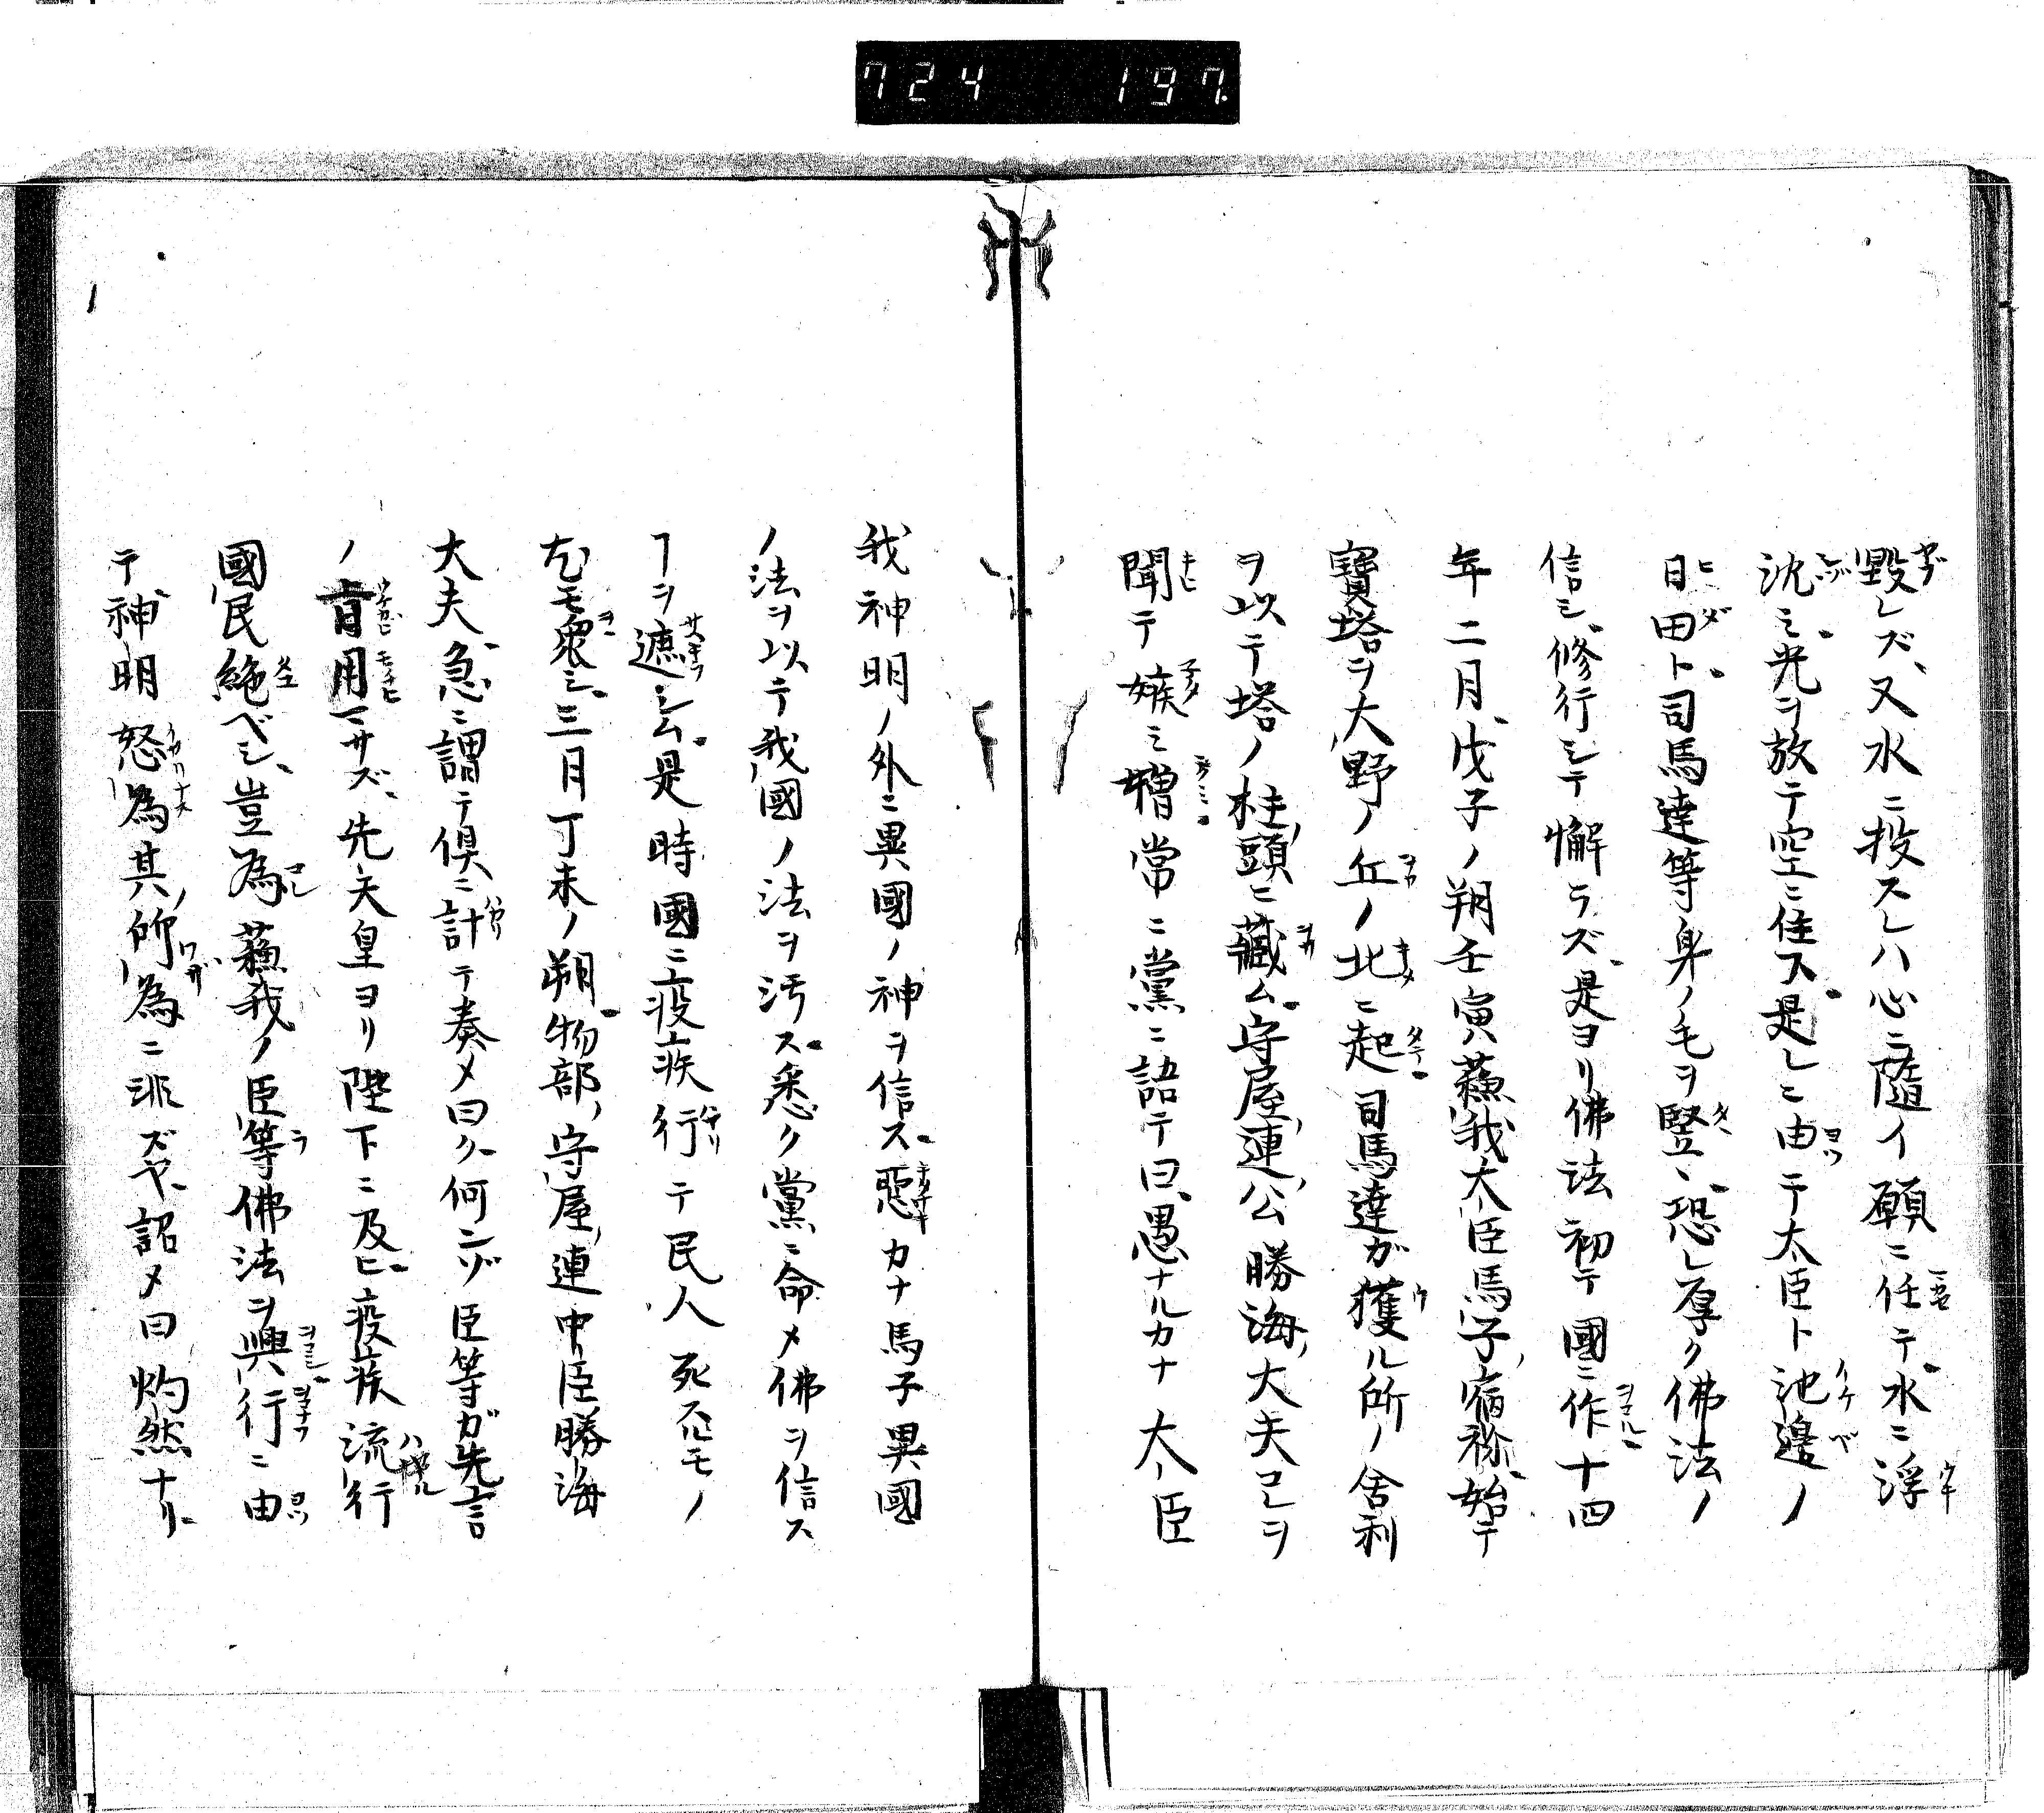 724 197.
毀レズ、又水ニ投スレハ心ニ隨イ願ニ任テ水ニ浮
沈ミ光ヲ放テ空ニ住ス是レニ由テ太臣ト池邉ノ
日田ト司馬達等身ノ毛ヲ竪、恐レ厚ク佛法ノ
信シ、修行シテ懈ラズ、是ヨリ佛法初テ國ニ作十四
年二月戊子ノ朔壬寅蘓我大臣馬子宿祢始テ
寳塔ヲ大野ノ丘ノ北ニ起司馬達ガ獲ル所ノ舍利
ヲ以テ塔ノ柱頭ニ藏ム守屋連公勝海大夫コレヲ
聞テ嫉ミ憎常ニ黨ニ語テ曰、愚ナルカナ大臣
我神明ノ外ニ異國ノ神ヲ信ス惡カナ馬子異國
ノ法ヲ以テ我國ノ法ヲ汚ス悉ク黨ニ命メ佛ヲ信ス
ヿヲ遮シム是時國ニ疫疾行テ民人死スモノ
尤モ衆シ、三月丁未ノ朔物部守屋連中臣勝海
大夫急ニ謂テ倶ニ計テ奏メ曰ク何ニゾ臣等ガ先言
ノ肯用ニサズ、先天皇ヨリ陛下ニ及ヒ疫疾流行
國民絶ベシ、豈為蘓我ノ臣等佛法ヲ興行ニ由
テ神明怒為其所為ニ非ズヤ、詔メ曰灼然ナリ